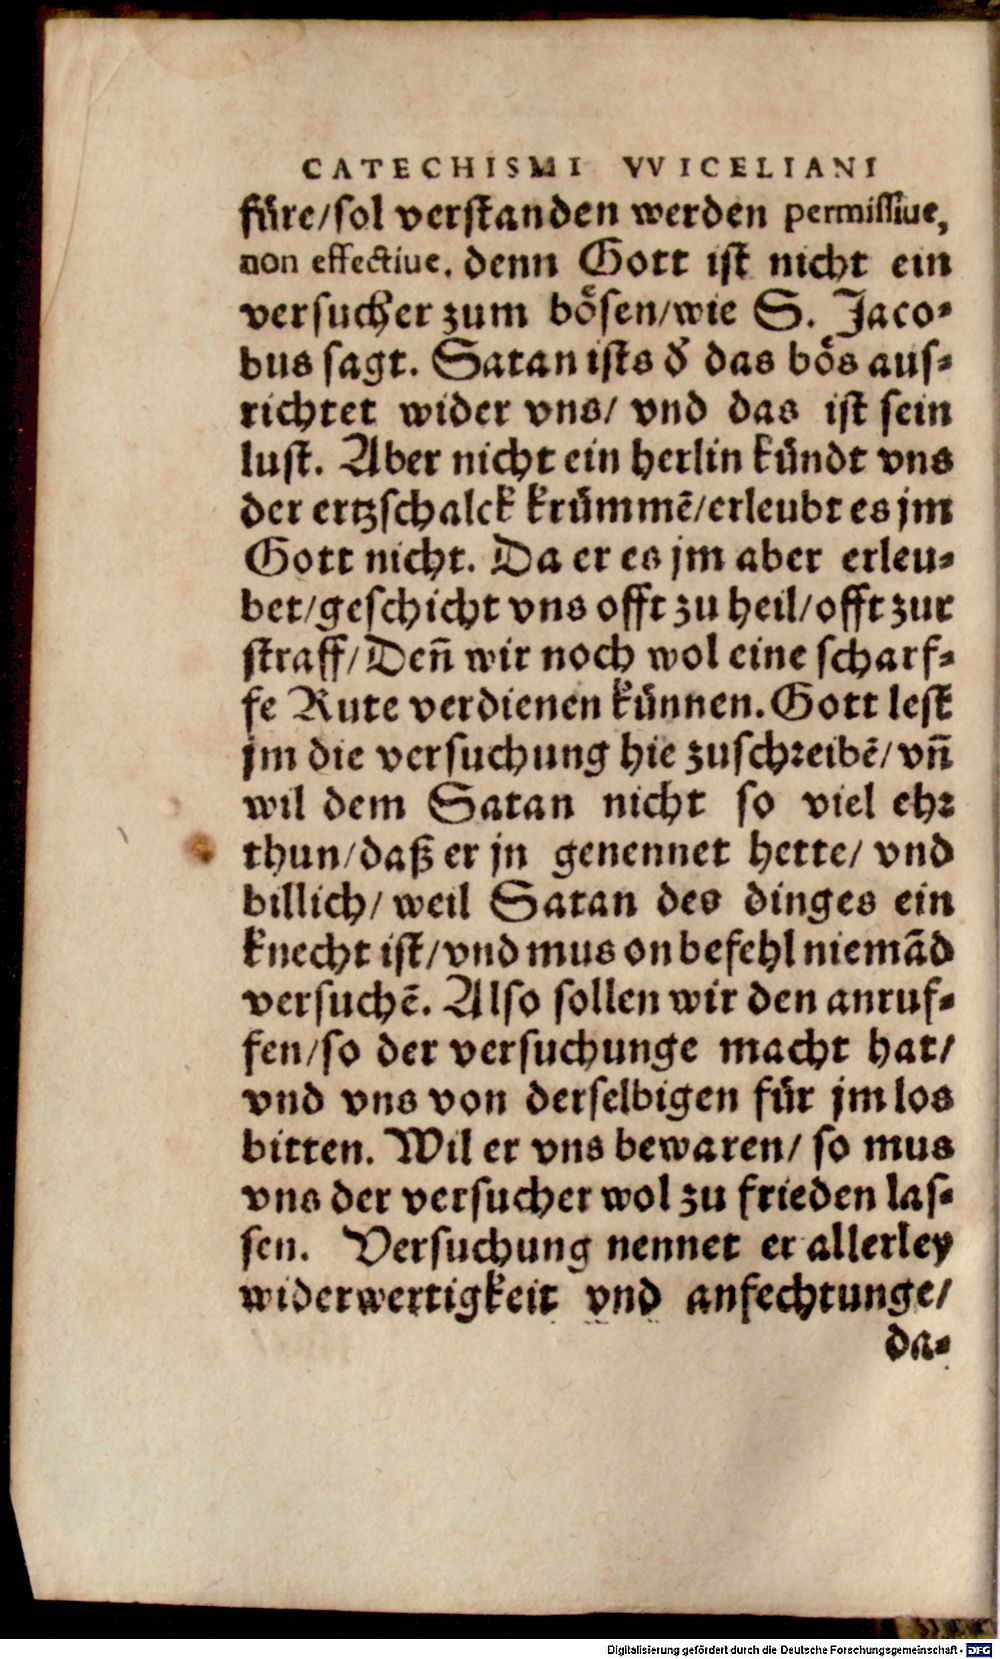 CATECHISMI VVICELIANI
füre/sol verstanden werden permissiue,
non effectiue. denn Gott ist nicht ein
versucher zum bösen/wie S. Jaco⸗
bus sagt. Satan ists d̕ das bös aus⸗
richtet wider vns/ vnd das ist sein
lust. Aber nicht ein herlin kündt vns
der ertzschalck krümmē/erleubt es jm
Gott nicht. Da er es jm aber erleu⸗
bet/geschicht vns offt zu heil/offt zur
straff/Deñ wir noch wol eine scharf⸗
fe Rute verdienen künnen. Gott lest
jm die versuchung hie zuschreibē/ vñ
wil dem Satan nicht so viel ehr
thun/daß er jn genennet hette/ vnd
billich/ weil Satan des dinges ein
knecht ist/vnd mus on befehl niemãd
versuchē. Also sollen wir den anruf⸗
fen/so der versuchunge macht hat/
vnd vns von derselbigen für jm los
bitten. Wil er vns bewaren/ so mus
vns der versucher wol zu frieden las⸗
sen. Versuchung nennet er allerley
widerwertigkeit vnd anfechtunge/
da⸗
Digitalisierung gefördert durch die Deutsche Forschungsgemeinschaft - DFG